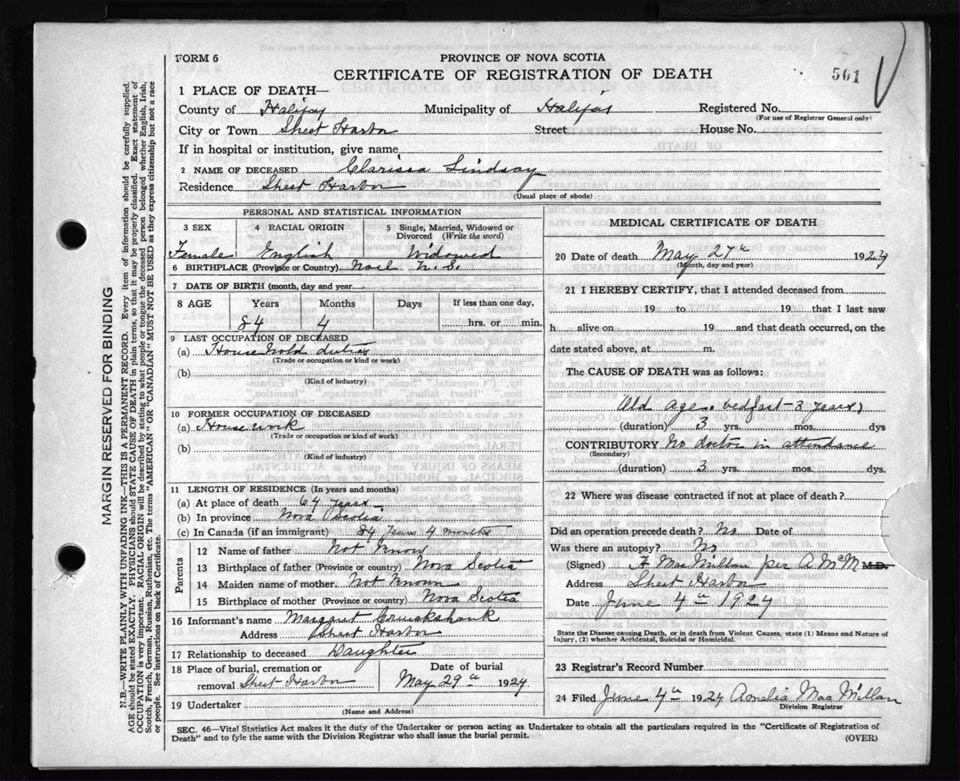 FORM 6
PROVINCE OF NOVA SCOTIA
CERTIFICATE OF REGISTRATION OF DEATH
561
1 PLACE OF DEATH—
County of Halifax Municipality of Halifax Registered No.
(For use of Registrar General only)
City or Town Sheet Harbor Street House No.
If in hospital or institution, give name
2 NAME OF DECEASED Clarissa Lindsay
Residence Sheet Harbor
(Usual place of abode)
PERSONAL AND STATISTICAL INFORMATION
3 SEX 4 RACIAL ORIGIN 5 Single, Married, Widowed or Divorced (Write the word)
Female English Widowed
6 BIRTHPLACE (Province or Country) Noel N. S.
7 DATE OF BIRTH (month, day and year)
8 AGE Years Months Days If less than one day,
84 4 hrs. or min.
9 LAST OCCUPATION OF DECEASED
(a) House hold duties
(Trade or occupation or kind or work)
(b)
(Kind of industry)
10 FORMER OCCUPATION OF DECEASED
(a) House work
(Trade or occupation or kind of work)
(b)
(Kind of industry)
11 LENGTH OF RESIDENCE (In years and months)
(a) At place of death 64 years
(b) In province Nova Scotia
(c) In Canada (if an immigrant) 84 years 4 months
Parents
12 Name of father Not Know
13 Birthplace of father (Province or country) Nova Scotia
14 Maiden name of mother Not Known
15 Birthplace of mother (Province or country) Nova Scotia
16 Informant's name Margaret
Address Sheet Harbor
17 Relationship to deceased Daughter
18 Place of burial, cremation or removal Sheet Harbor Date of burial May 29th 1924
19 Undertaker
(Name and Address)
MEDICAL CERTIFICATE OF DEATH
20 Date of death May 27th 1924
(Month, day and year)
21 I HEREBY CERTIFY, that I attended deceased from
19 to 19 that I last saw
h alive on 19 and that death occurred, on
date stated above, at m.
The CAUSE OF DEATH was as follows:
Old age. bedfast - 3 years
(duration) 3 yrs. mos. dys
CONTRIBUTORY No doctor in attendance
(Secondary)
(duration) 3 yrs. mos. dys.
22 Where was disease contracted if not at place of death?
Did an operation precede death? No Date of
Was there an autopsy? No
(Signed) A MacMillan per A McM M.D.
Address Sheet Harbor
Date June 4th 1924
State the Disease causing Death, or in death from Violent Causes, state (1) Means and Nature of
Injury, (2) whether Accidental, Suicidal or Homicidal.
23 Registrar's Record Number
24 Filed June 4th 1924 Amelia MacMillan
Division Registrar
SEC. 46—Vital Statistics Act makes it the duty of the Undertaker or person acting as Undertaker to obtain all the particulars required in the "Certificate of Registration of
Death" and to fyle the same with the Division Registrar who shall issue the burial permit.
(OVER)
MARGIN RESERVED FOR BINDING
N.B.—WRITE PLAINLY WITH UNFADING INK—THIS IS A PERMANENT RECORD. Every item of information should be carefully supplied.
AGE should be stated EXACTLY. PHYSICIANS should STATE CAUSE OF DEATH in plain terms, so that it may be properly classified. Exact statement of
OCCUPATION is very important. RACIAL ORIGIN will be described by stating to what people or tongue the deceased person belonged whether English, Irish,
Scotch, French, German, Russian, Ruthenian, etc. The terms "AMERICAN" OR "CANADIAN" MUST NOT BE USED as they express citizenship but not a race
or people. See instructions on back of Certificate.